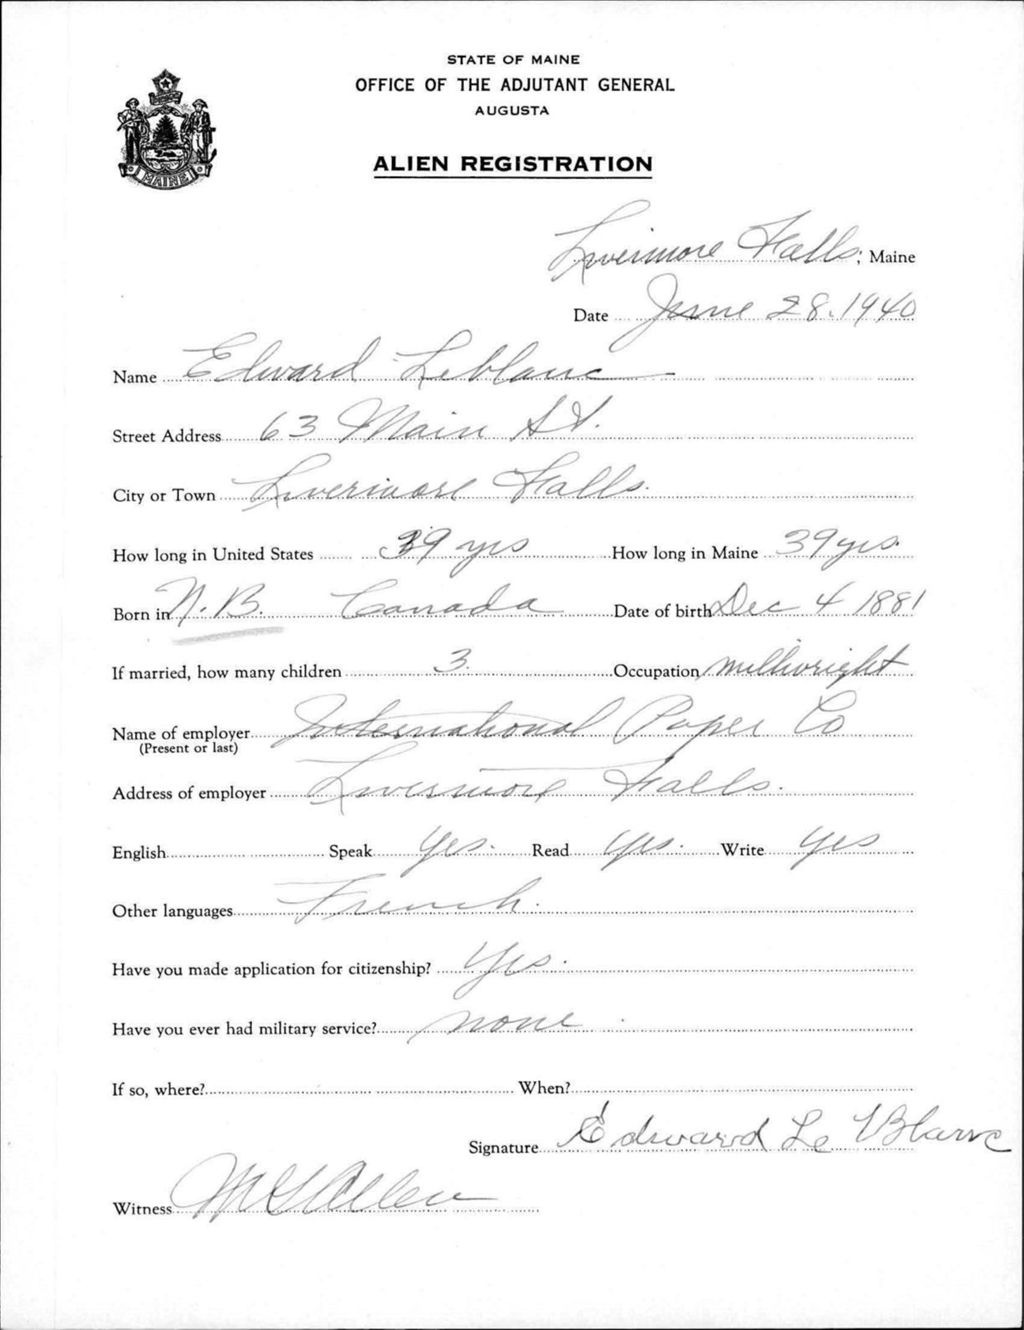 STATE OF MAINE
OFFICE OF THE ADJUTANT GENERAL
AUGUSTA
ALIEN REGISTRATION
MAINE
Livermore Falls, Maine
Date June 28. 1940
Name Edward Leblanc
Street Address 63 Main St.
City or Town Livermore Falls.
How long in United States 39 yrs How long in Maine 39 yrs.
Born in N.B. Canada Date of birth Dec 4 1881
If married, how many children 3 Occupation millwright
Name of employer International Paper Co
(Present or last)
Address of employer Livermore Falls.
English Speak Yes. Read Yes. Write Yes
Other languages French.
Have you made application for citizenship? Yes.
Have you ever had military service? none.
If so, where? When?
Signature Edward Le Blanc
Witness Allen